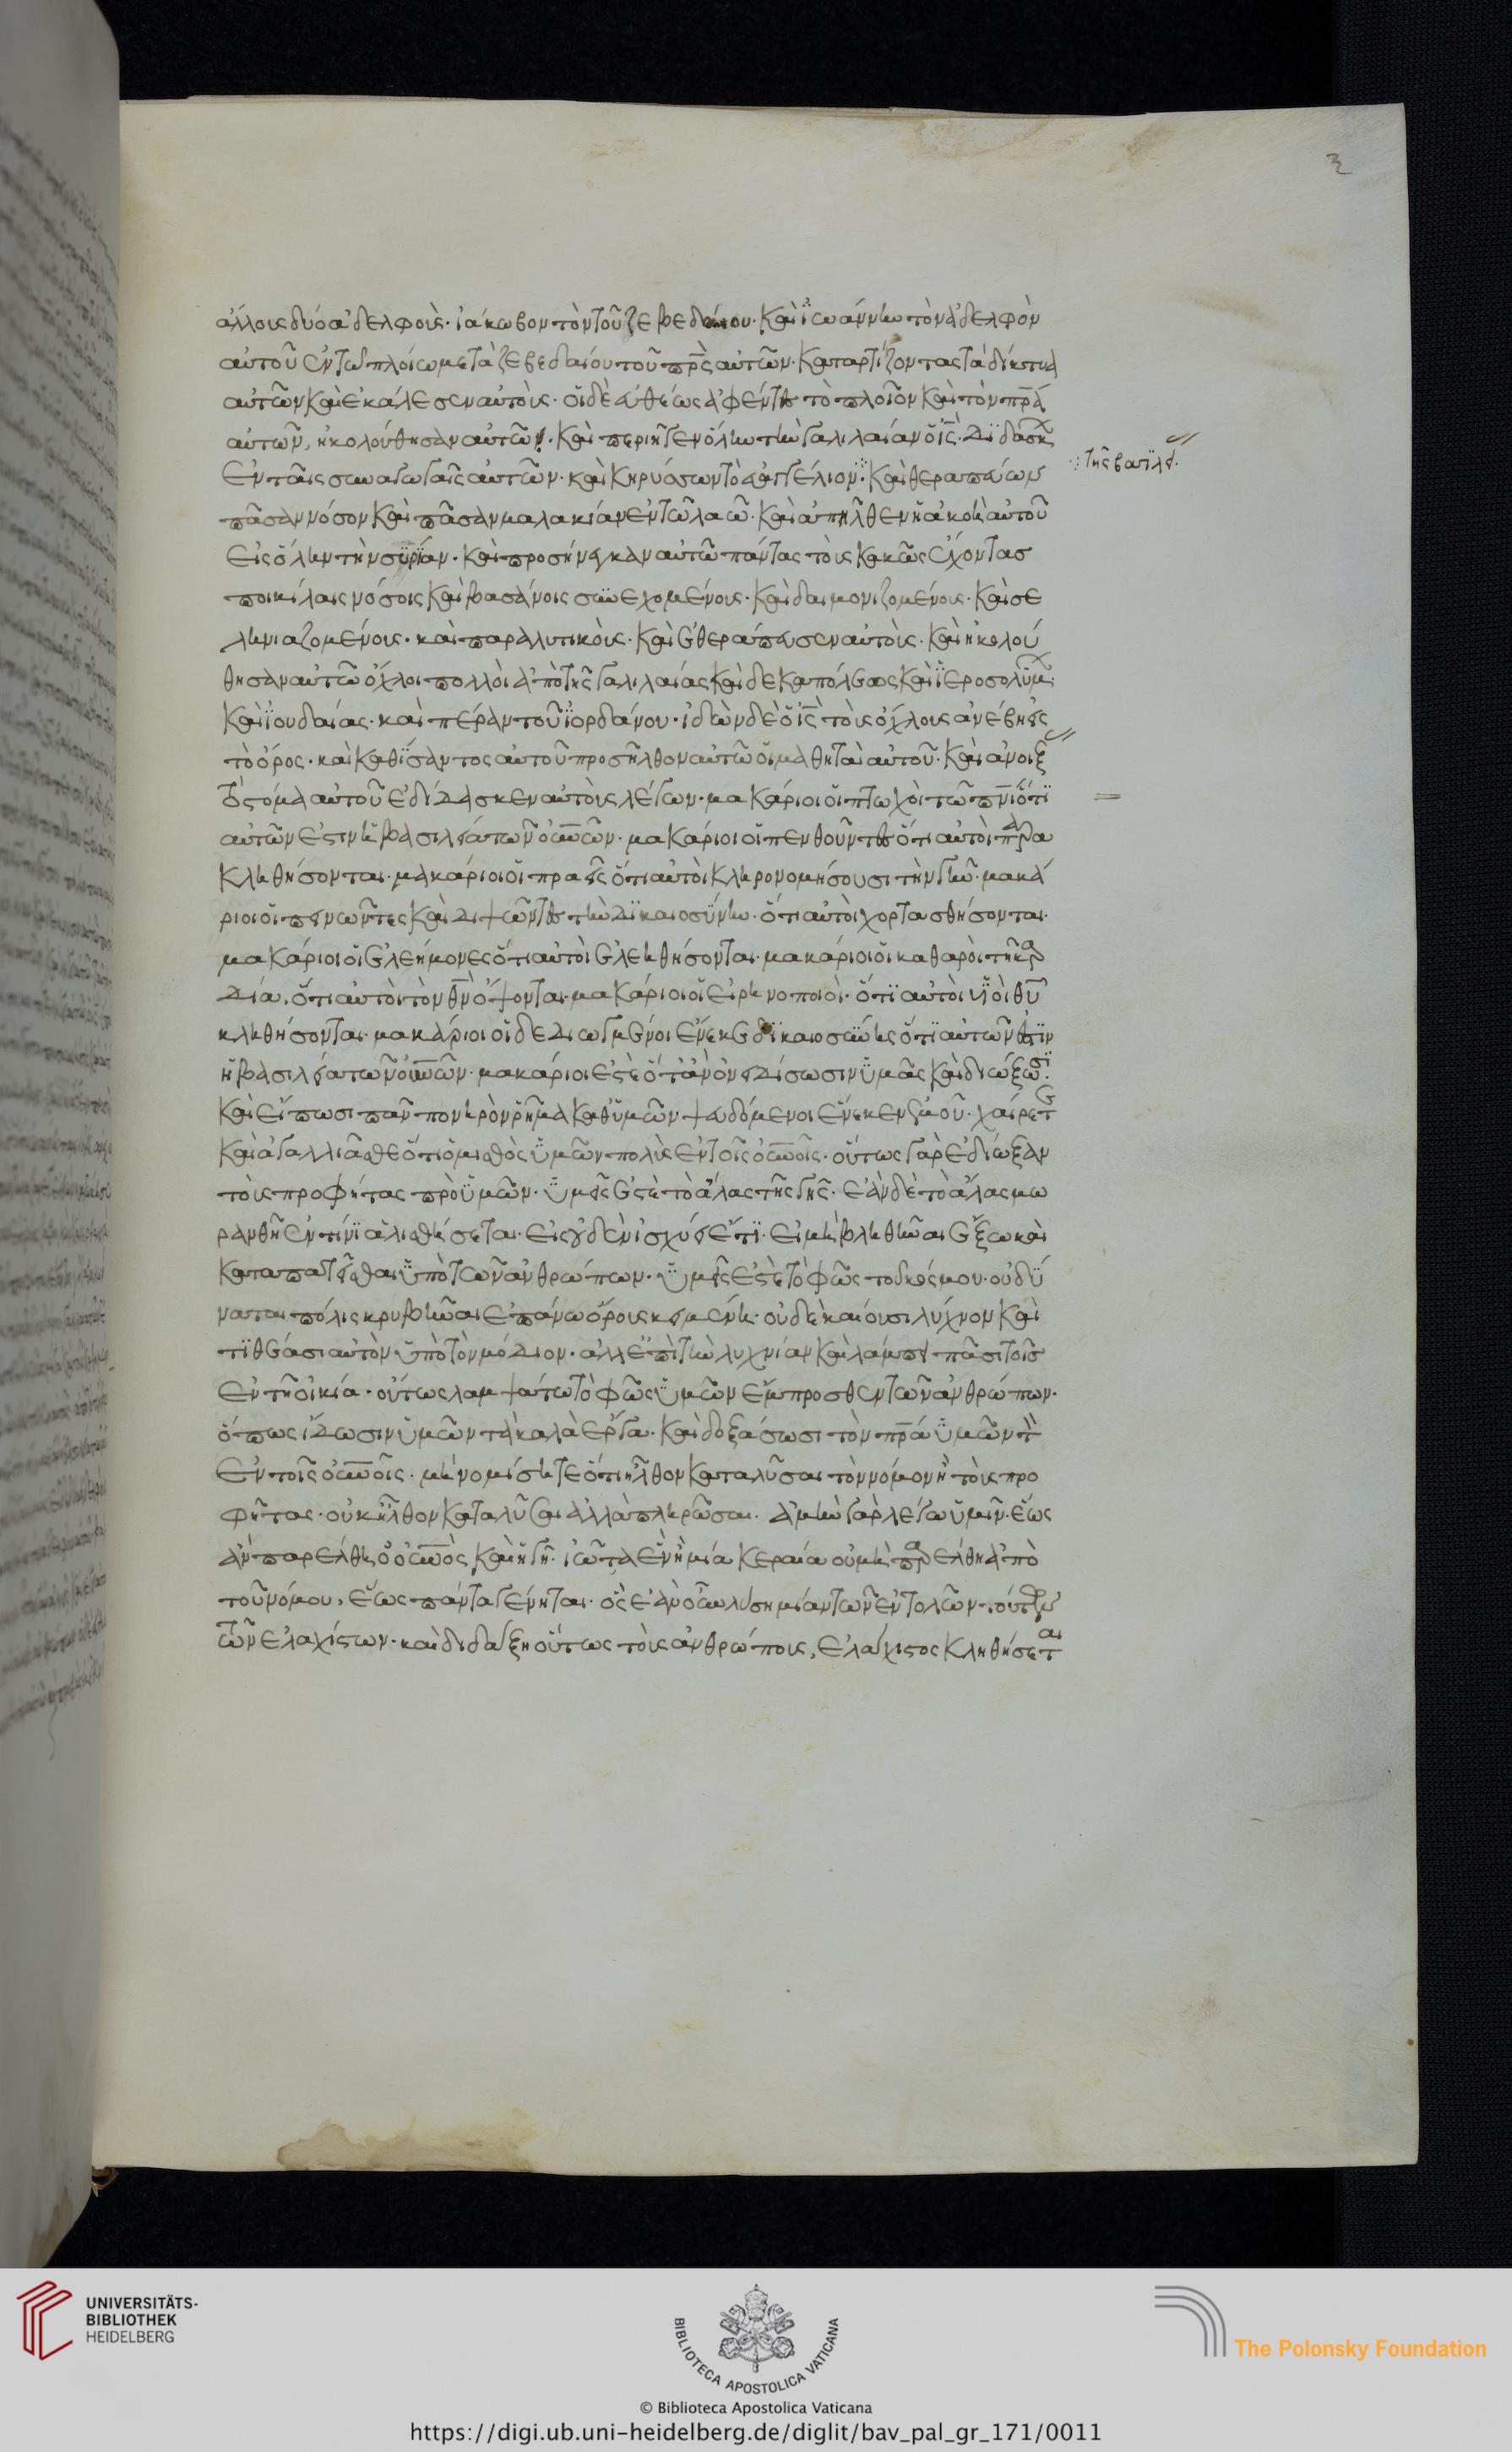 3
ἄλλους δύο ἀδελφούς· ἰάκωβον τὸν τοῦ ζεβεδαίου· καὶ ἰωάννην τὸν ἀδελφὸν
αὐτοῦ ἐν τῶ πλοίω μετὰ ζεβεδαίου τοῦ πρ̅ς αὐτῶν· καταρτίζοντας τὰ δίκτυα
αὐτῶν καὶ ἐκάλεσεν αὐτούς· οἱ δὲ εὐθέως ἀφέντες τὸ πλοῖον καὶ τὸν πρ̅α
αὐτῶν, ἠκολούθησαν αὐτῶ· καὶ περιῆγεν ὅλην τὴν γαλιλαίαν ὁ ις̅· διδάσκ
ἐν ταῖς συναγωγαῖς αὐτῶν· καὶ κηρύσσων τὸ εὐαγγέλιον ⁘ καὶ θεραπεύων
⁘ τῆς βασιλεί
πᾶσαν νόσον καὶ πᾶσαν μαλακίαν ἐν τῶ λαῶ· καὶ ἀπῆλθεν ἡ ἀκοὴ αὐτοῦ
εἰς ὅλην τὴν συρίαν· καὶ προσήνεγκαν αὐτῶ πάντας τοὺς κακῶς ἔχοντας
ποικίλαις νόσοις καὶ βασάνοις συνεχομένους· καὶ δαιμονιζομένους· καὶ σε
ληνιαζομένους· καὶ παραλυτικούς· καὶ ἐθεράπευσεν αὐτούς· καὶ ἠκολού
θησαν αὐτῶ ὄχλοι πολλοὶ ἀπὸ τῆς γαλιλαίας καὶ δεκαπόλεως καὶ ἱεροσολύμ
καὶ ἰουδαίας· καὶ πέραν τοῦ ἰορδάνου· ἰδὼν δὲ ὁ ις̅ τοὺς ὄχλους ἀνέβη εἰς
τὸ ὄρος· καὶ καθίσαντος αὐτοῦ προσῆλθον αὐτῶ οἱ μαθηταὶ αὐτοῦ· καὶ ἀνοίξ
τὸ στόμα αὐτοῦ ἐδίδασκεν αὐτοὺς λέγων· μακάριοι οἱ πτωχοὶ τῶ πν̅ι ὅτι
αὐτῶν ἐστιν ἡ βασιλεία τῶν ουν̅ων· μακάριοι οἱ πενθοῦντες ὅτι αὐτοὶ παρα
κληθήσονται· μακάριοι οἱ πραεῖς ὅτι αὐτοὶ κληρονομήσουσι τὴν γῆν· μακά
ριοι οἱ πεινῶντες καὶ διψῶντες τὴν δικαιοσύνην· ὅτι αὐτοὶ χορτασθήσονται·
μακάριοι οἱ ἐλεήμονες ὅτι αὐτοὶ ἐλεηθήσονται· μακάριοι οἱ καθαροὶ τῆ καρ
δία· ὅτι αὐτοὶ τὸν θν̅ ὄψονται· μακάριοι οἱ εἰρηνοποιοί· ὅτι αὐτοὶ υἱοὶ θυ̅
κληθήσονται· μακάριοι οἱ δεδιωγμένοι ἕνεκε δικαιοσύνης ὅτι αὐτῶν ἐστιν
ἡ βασιλεία τῶν ουν̅ων· μακάριοι ἐστὲ ὅταν ὀνειδίσωσιν ὑμᾶς καὶ διώξωσι·
καὶ εἴπωσι πᾶν πονηρὸν ῥῆμα καθ ὑμῶν ψευδόμενοι ἕνεκεν ἐμοῦ· χαίρετε
καὶ ἀγαλλιᾶσθε ὅτι ὁ μισθὸς ὑμῶν πολὺς ἐν τοῖς ουν̅οις· οὕτως γὰρ ἐδίωξαν
τοὺς προφήτας πρὸ ὑμῶν· ὑμεῖς ἐστὲ τὸ ἅλας τῆς γῆς· ἐὰν δὲ τὸ ἅλας μω
ρανθῆ ἐν τίνι ἁλισθήσεται· εἰς οὐδὲν ἰσχύει ἔτι· εἰ μὴ βληθῆναι ἔξω καὶ
καταπατεῖσθαι ὑπὸ τῶν ἀνθρώπων· ὑμεῖς ἐστὲ τὸ φῶς τοῦ κόσμου· οὐ δύ
ναται πόλις κρυβῆναι ἐπάνω ὄρους κειμένη· οὐδὲ καίουσι λύχνον καὶ
τιθέασι αὐτὸν ὑπὸ τὸν μόδιον· ἀλλ ἐπὶ τὴν λυχνίαν καὶ λάμπει πᾶσι τοῖς
ἐν τῆ οἰκία· οὕτως λαμψάτω τὸ φῶς ὑμῶν ἔμπροσθεν τῶν ἀνθρώπων·
ὅπως ἴδωσιν ὑμῶν τὰ καλὰ ἔργα· καὶ δοξάσωσι τὸν πρ̅α ὑμῶν τὸν
ἐν τοῖς ουν̅οις· μὴ νομίσητε ὅτι ἦλθον καταλῦσαι τὸν νόμον ἢ τοὺς προ
φήτας· οὐκ ἦλθον καταλῦσαι ἀλλὰ πληρῶσαι· ἀμὴν γὰρ λέγω ὑμῖν· ἕως
ἂν παρέλθη ὁ ουν̅ος καὶ ἡ γῆ· ἰῶτα ἓν ἢ μία κεραία οὐ μὴ παρέλθη ἀπὸ
τοῦ νόμου, ἕως πάντα γένηται· ὃς ἐὰν οὖν λύση μίαν τῶν ἐντολῶν τούτων
τῶν ἐλαχίστων· καὶ διδάξη οὕτως τοὺς ἀνθρώπους, ἐλάχιστος κληθήσεται
UNIVERSITÄTS-
BIBLIOTHEK
HEIDELBERG
BIBLIOTECA APOSTOLICA VATICANA
The Polonsky Foundation
© Biblioteca Apostolica Vaticana
https://digi.ub.uni-heidelberg.de/diglit/bav_pal_gr_171/0011